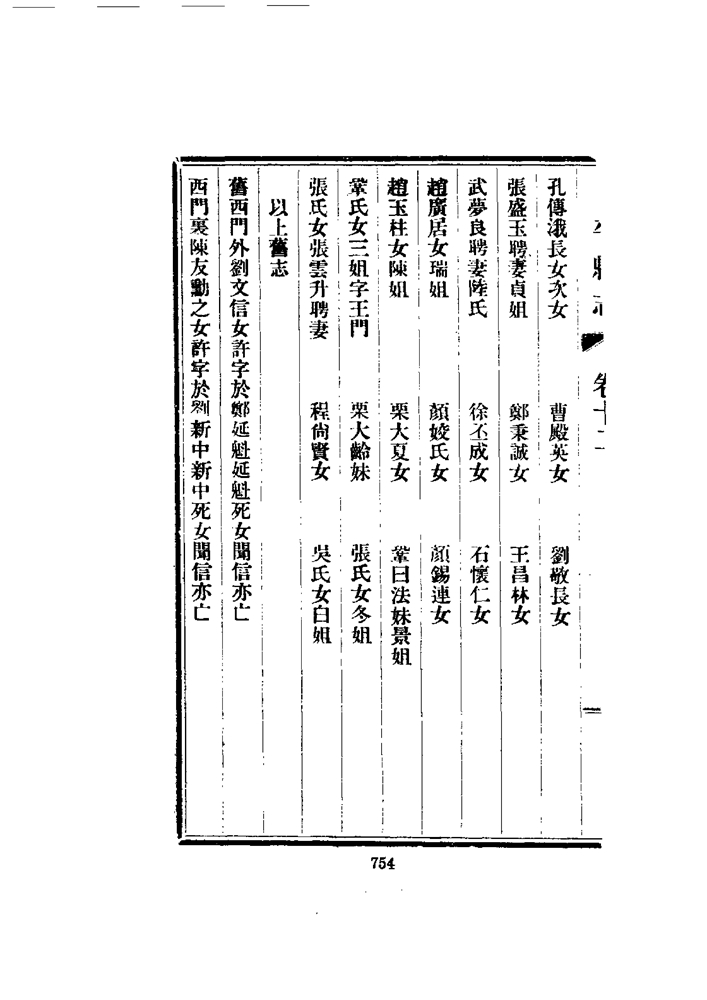 縣志 卷十二
孔傳涐長女次女 曹殿英女 劉敬長女
張盛玉聘妻貞姐 鄭秉誠女 王昌林女
武夢良聘妻陸氏 徐丕成女 石懷仁女
趙廣居女瑞姐 顏姣氏女 顏錫連女
趙玉柱女陳姐 栗大夏女 鞏曰法妹景姐
鞏氏女三姐字王門 栗大齡妹 張氏女冬姐
張氏女張雲升聘妻 程尙賢女 吳氏女白姐
以上舊志
舊西門外劉文信女許字於鄭延魁延魁死女聞信亦亡
西門裏陳友勳之女許字於劉新中新中死女聞信亦亡
754